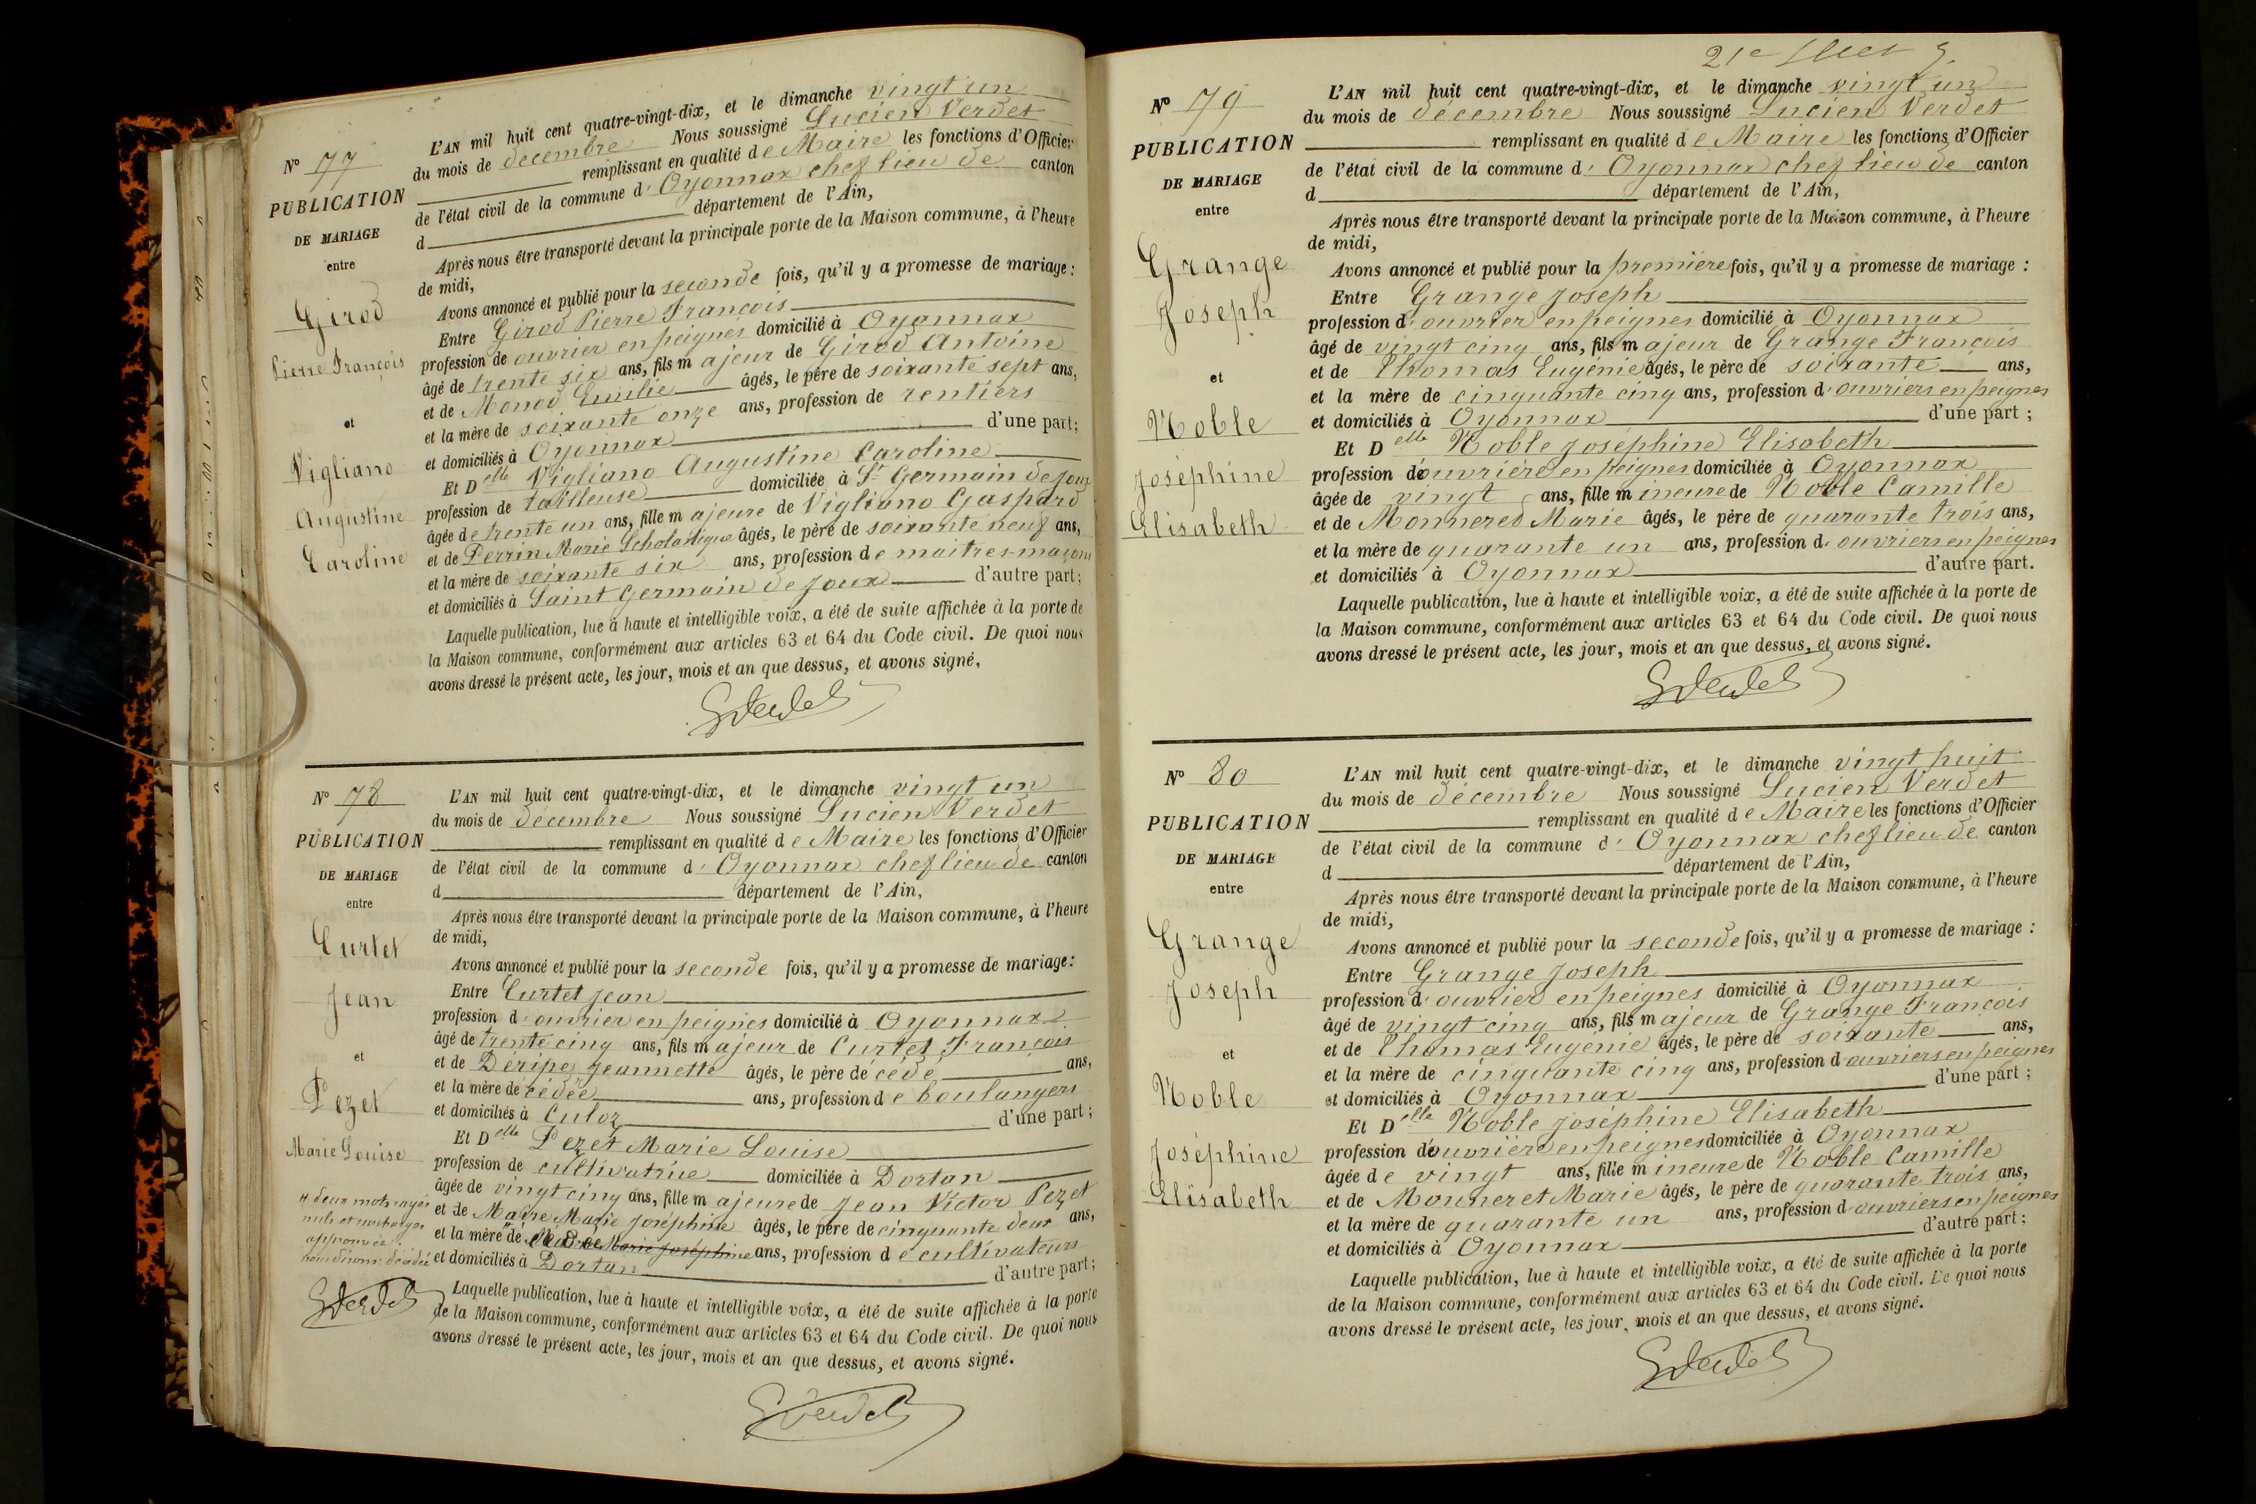 Nº 77
PUBLICATION
DE MARIAGE
entre
Girod
Pierre François
et
Vigliano
Augustine
Caroline
L'AN mil huit cent quatre-vingt-dix, et le dimanche vingt un
du mois de décembre Nous soussigné Lucien Verdet
remplissant en qualité de Maire les fonctions d'Officier
de l'état civil de la commune d'Oyonnax chef lieu de canton
d département de l'Ain,
Après nous être transporté devant la principale porte de la Maison commune, à l'heure
de midi,
Avons annoncé et publié pour la seconde fois, qu'il y a promesse de mariage :
Entre Girod Pierre François
profession de ouvrier en peignes domicilié à Oyonnax
âgé de trente six ans, fils majeur de Girod Antoine
et de Monod Emilie âgés, le père de soixante sept ans,
et la mère de soixante onze ans, profession de rentiers
et domiciliés à Oyonnax d'une part;
Et Delle Vigliano Augustine Caroline
profession de tailleuse domiciliée à St Germain de Joux
âgée de trente un ans, fille majeure de Vigliano Gaspard
et de Perrin Marie Scholastique âgés, le père de soixante neuf ans,
et la mère de soixante six ans, profession de maitres-maçons
et domiciliés à Saint Germain de Joux d'autre part;
Laquelle publication, lue à haute et intelligible voix, a été de suite affichée à la porte de
la Maison commune, conformément aux articles 63 et 64 du Code civil. De quoi nous
avons dressé le présent acte, les jour, mois et an que dessus, et avons signé,
LVerdet
Nº 78
PUBLICATION
DE MARIAGE
entre
Curtet
Jean
et
Pezet
Marie Louise
deux mots rayés
nuls et surcharges
approuvée
LVerdet
L'AN mil huit cent quatre-vingt-dix, et le dimanche vingt un
du mois de décembre Nous soussigné Lucien Verdet
remplissant en qualité de Maire les fonctions d'Officier
de l'état civil de la commune d'Oyonnax chef lieu de canton
d département de l'Ain,
Après nous être transporté devant la principale porte de la Maison commune, à l'heure
de midi,
Avons annoncé et publié pour la seconde fois, qu'il y a promesse de mariage :
Entre Curtet Jean
profession d'ouvrier en peignes domicilié à Oyonnax
âgé de trente cinq ans, fils majeur de Curtet François
et de Déripe Jeannette âgés, le père de cédé ans,
et la mère de cédée ans, profession de boulangers
et domiciliés à Culoz d'une part ;
Et Delle Pezet Marie Louise
profession de cultivatrice domiciliée à Dortan
âgée de vingt cinq ans, fille majeure de Jean Victor Pezet
et de Maire Marie Joséphine âgés, le père de cinquante deux ans,
et la mère de Marie Joséphine ans, profession de cultivateurs
et domiciliés à Dortan d'autre part;
Laquelle publication, lue à haute et intelligible voix, a été de suite affichée à la porte
de la Maison commune, conformément aux articles 63 et 64 du Code civil. De quoi nous
avons dressé le présent acte, les jour, mois et an que dessus, et avons signé.
LVerdet
21e
Nº 79
PUBLICATION
DE MARIAGE
entre
Grange
Joseph
et
Noble
Joséphine
Elisabeth
L'AN mil huit cent quatre-vingt-dix, et le dimanche vingt un
du mois de décembre Nous soussigné Lucien Verdet
remplissant en qualité de Maire les fonctions d'Officier
de l'état civil de la commune d'Oyonnax chef lieu de canton
d département de l'Ain,
Après nous être transporté devant la principale porte de la Maison commune, à l'heure
de midi,
Avons annoncé et publié pour la première fois, qu'il y a promesse de mariage :
Entre Grange Joseph
profession d'ouvrier en peignes domicilié à Oyonnax
âgé de vingt cinq ans, fils majeur de Grange François
et de Thomas Eugénie âgés, le père de soixante ans,
et la mère de cinquante cinq ans, profession d'ouvriers en peignes
et domiciliés à Oyonnax d'une part ;
Et Delle Noble Joséphine Elisabeth
profession d'ouvrière en peignes domiciliée à Oyonnax
âgée de vingt ans, fille mineure de Noble Camille
et de Monneret Marie âgés, le père de quarante trois ans,
et la mère de quarante un ans, profession d'ouvriers en peignes
et domiciliés à Oyonnax d'autre part.
Laquelle publication, lue à haute et intelligible voix, a été de suite affichée à la porte de
la Maison commune, conformément aux articles 63 et 64 du Code civil. De quoi nous
avons dressé le présent acte, les jour, mois et an que dessus, et avons signé.
LVerdet
Nº 80
PUBLICATION
DE MARIAGE
entre
Grange
Joseph
et
Noble
Joséphine
Elisabeth
L'AN mil huit cent quatre-vingt-dix, et le dimanche vingt huit
du mois de décembre Nous soussigné Lucien Verdet
remplissant en qualité de Maire les fonctions d'Officier
de l'état civil de la commune d'Oyonnax chef lieu de canton
d département de l'Ain,
Après nous être transporté devant la principale porte de la Maison commune, à l'heure
de midi,
Avons annoncé et publié pour la seconde fois, qu'il y a promesse de mariage :
Entre Grange Joseph
profession d'ouvrier en peignes domicilié à Oyonnax
âgé de vingt cinq ans, fils majeur de Grange François
et de Thomas Eugénie âgés, le père de soixante ans,
et la mère de cinquante cinq ans, profession d'ouvriers en peignes
et domiciliés à Oyonnax d'une part ;
Et Delle Noble Joséphine Elisabeth
profession d'ouvrière en peignes domiciliée à Oyonnax
âgée de vingt ans, fille mineure de Noble Camille
et de Monneret Marie âgés, le père de quarante trois ans,
et la mère de quarante un ans, profession d'ouvriers en peignes
et domiciliés à Oyonnax d'autre part;
Laquelle publication, lue à haute et intelligible voix, a été de suite affichée à la porte
de la Maison commune, conformément aux articles 63 et 64 du Code civil. De quoi nous
avons dressé le présent acte, les jour, mois et an que dessus, et avons signé.
LVerdet